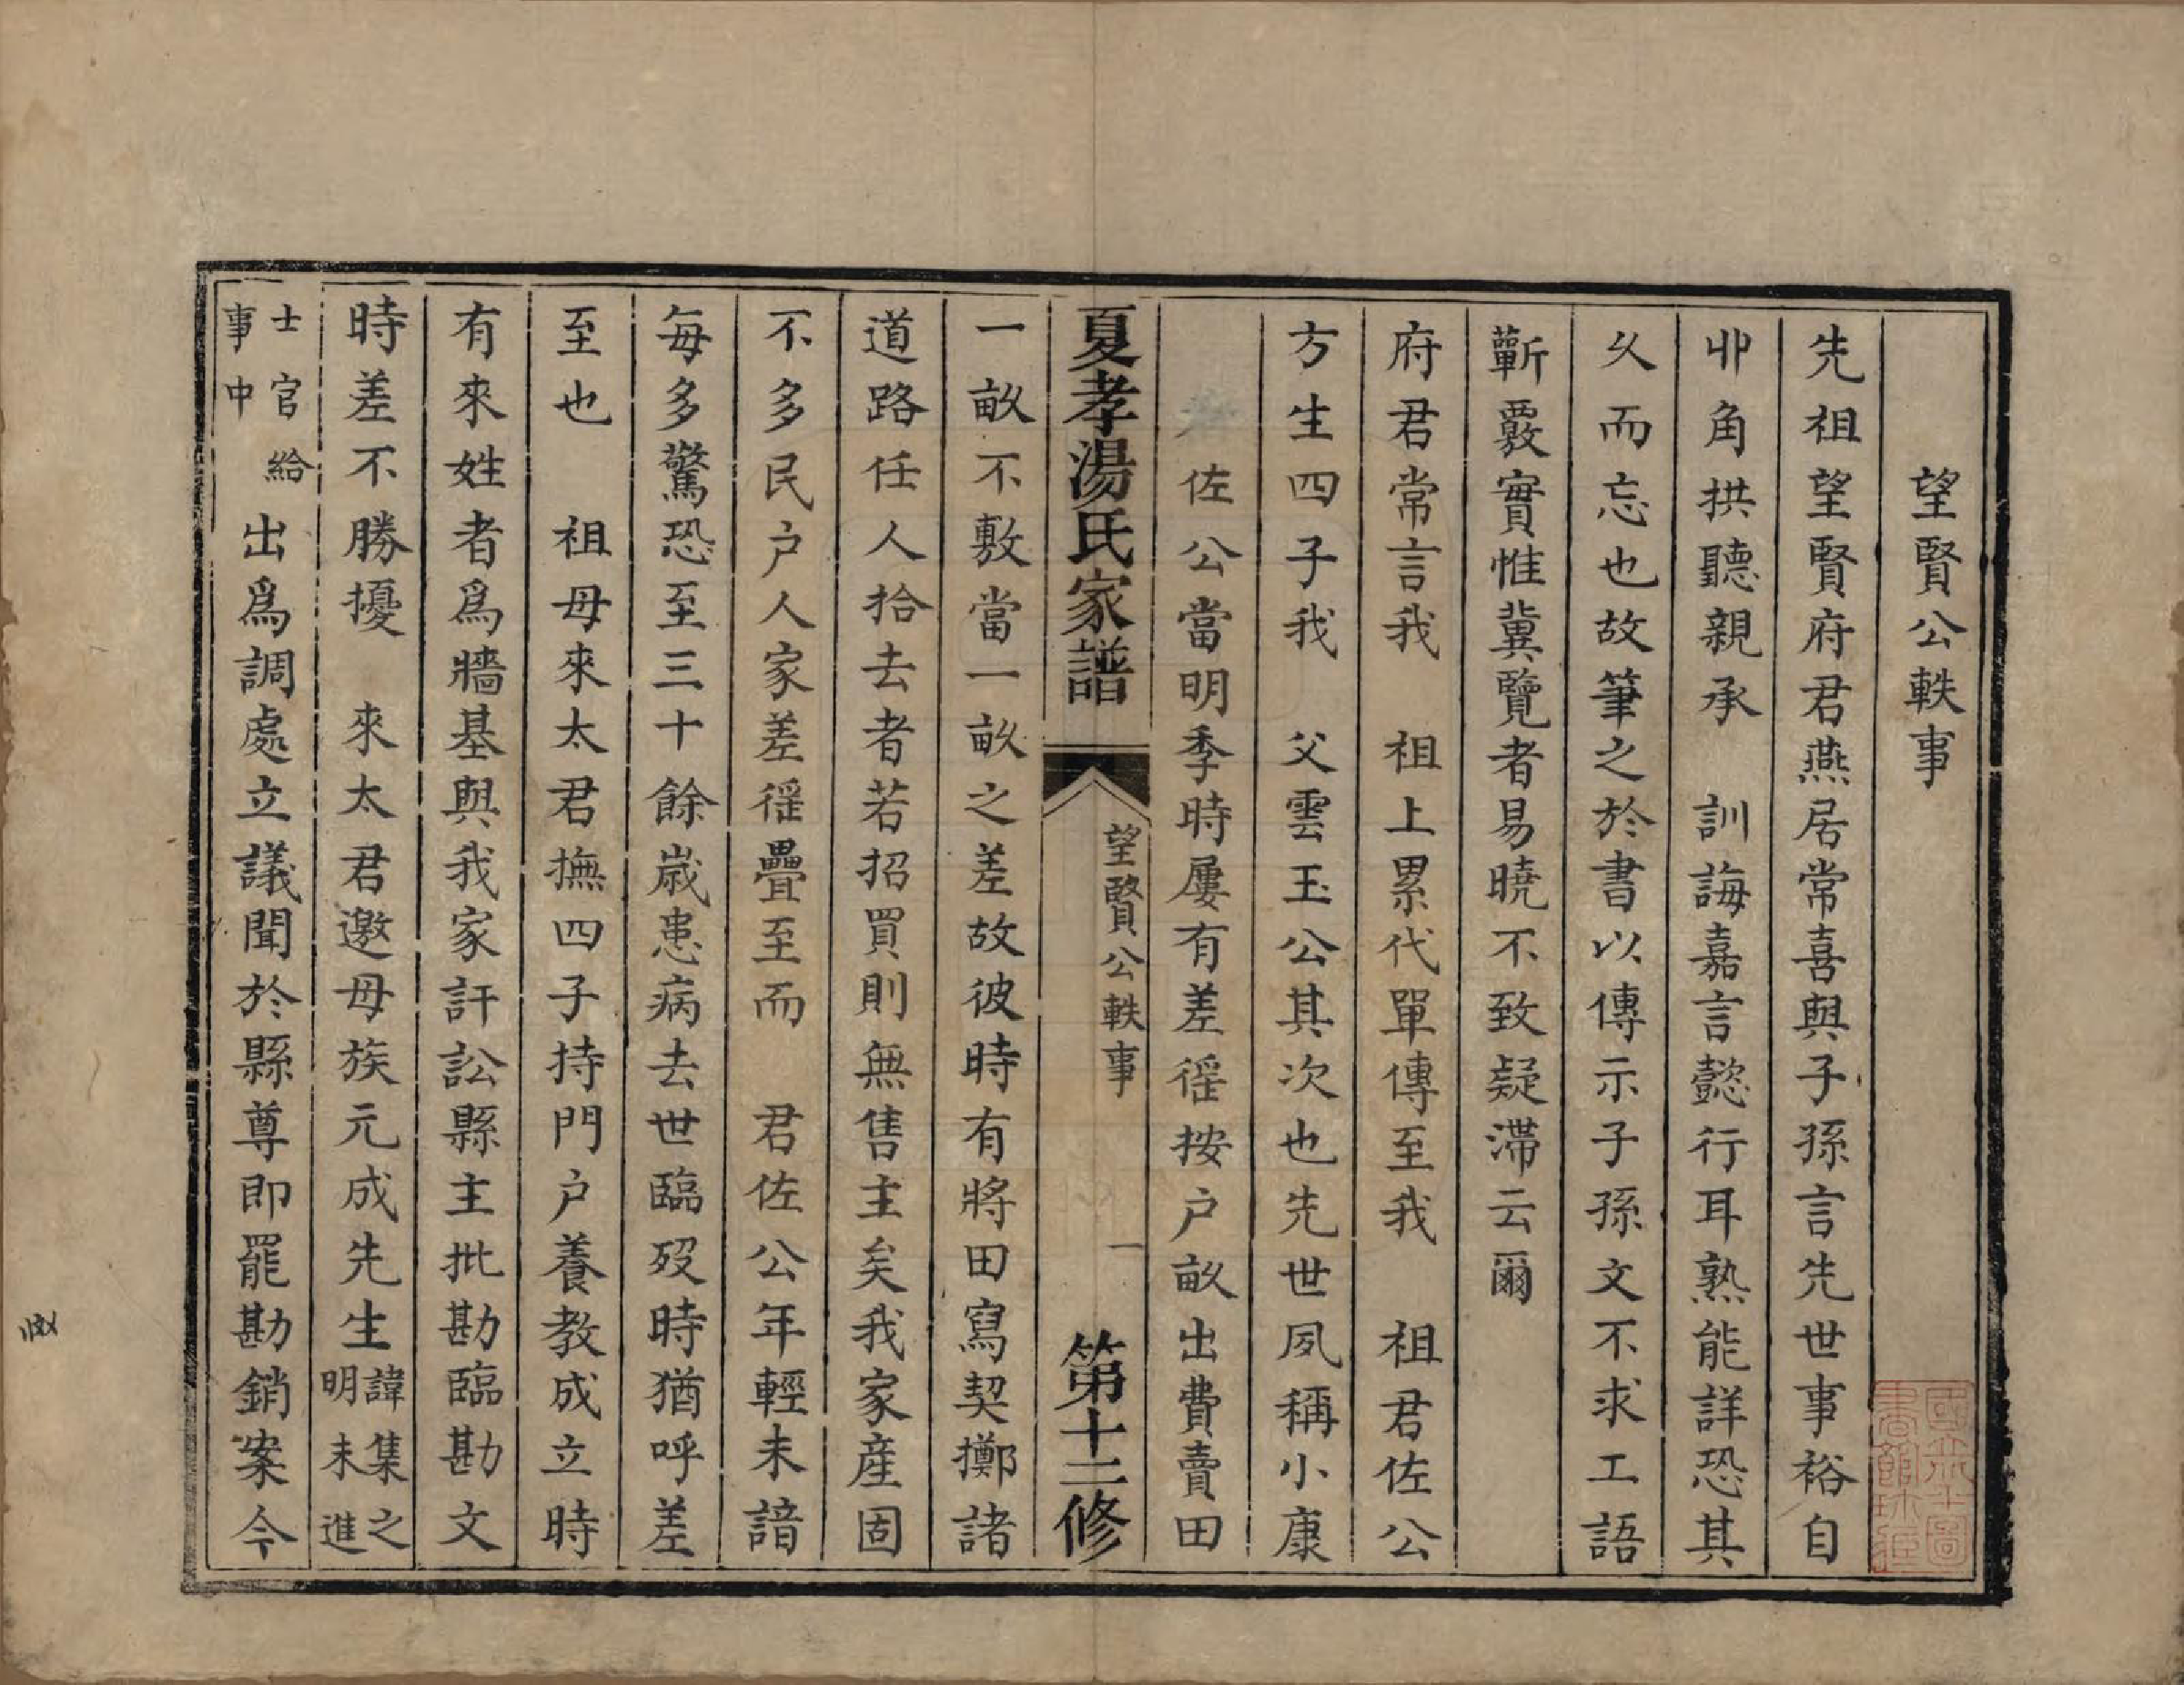 望賢公軼事
先祖望賢府君燕居常喜與子孫言先世事裕自
丱角拱聽親承　訓誨嘉言懿行耳熟能詳恐其
久而忘也故筆之於書以傳示子孫文不求工語
蘄覈實惟冀覽者易曉不致疑滯云爾
府君常言我　祖上累代單傳至我　祖君佐公
方生四子我　父雲玉公其次也先世夙稱小康
佐公當明季時屢有差徭按户畝出費賣田
夏孝湯氏家譜　望賢公軼事　一　第十二修
一畝不敷當一畝之差故彼時有將田寫契擲諸
道路任人拾去者若招買則無售主矣我家産固
不多民户人家差徭疊至而　君佐公年輕未諳
每多驚恐至三十餘歲患病去世臨歿時猶呼差
至也　祖母來太君撫四子持門户養教成立時
有來姓者爲牆基與我家訐訟縣主批勘臨勘文
時差不勝擾　來太君邀母族元成先生諱集之明末進
士官給事中出爲調處立議聞於縣尊即罷勘銷案今